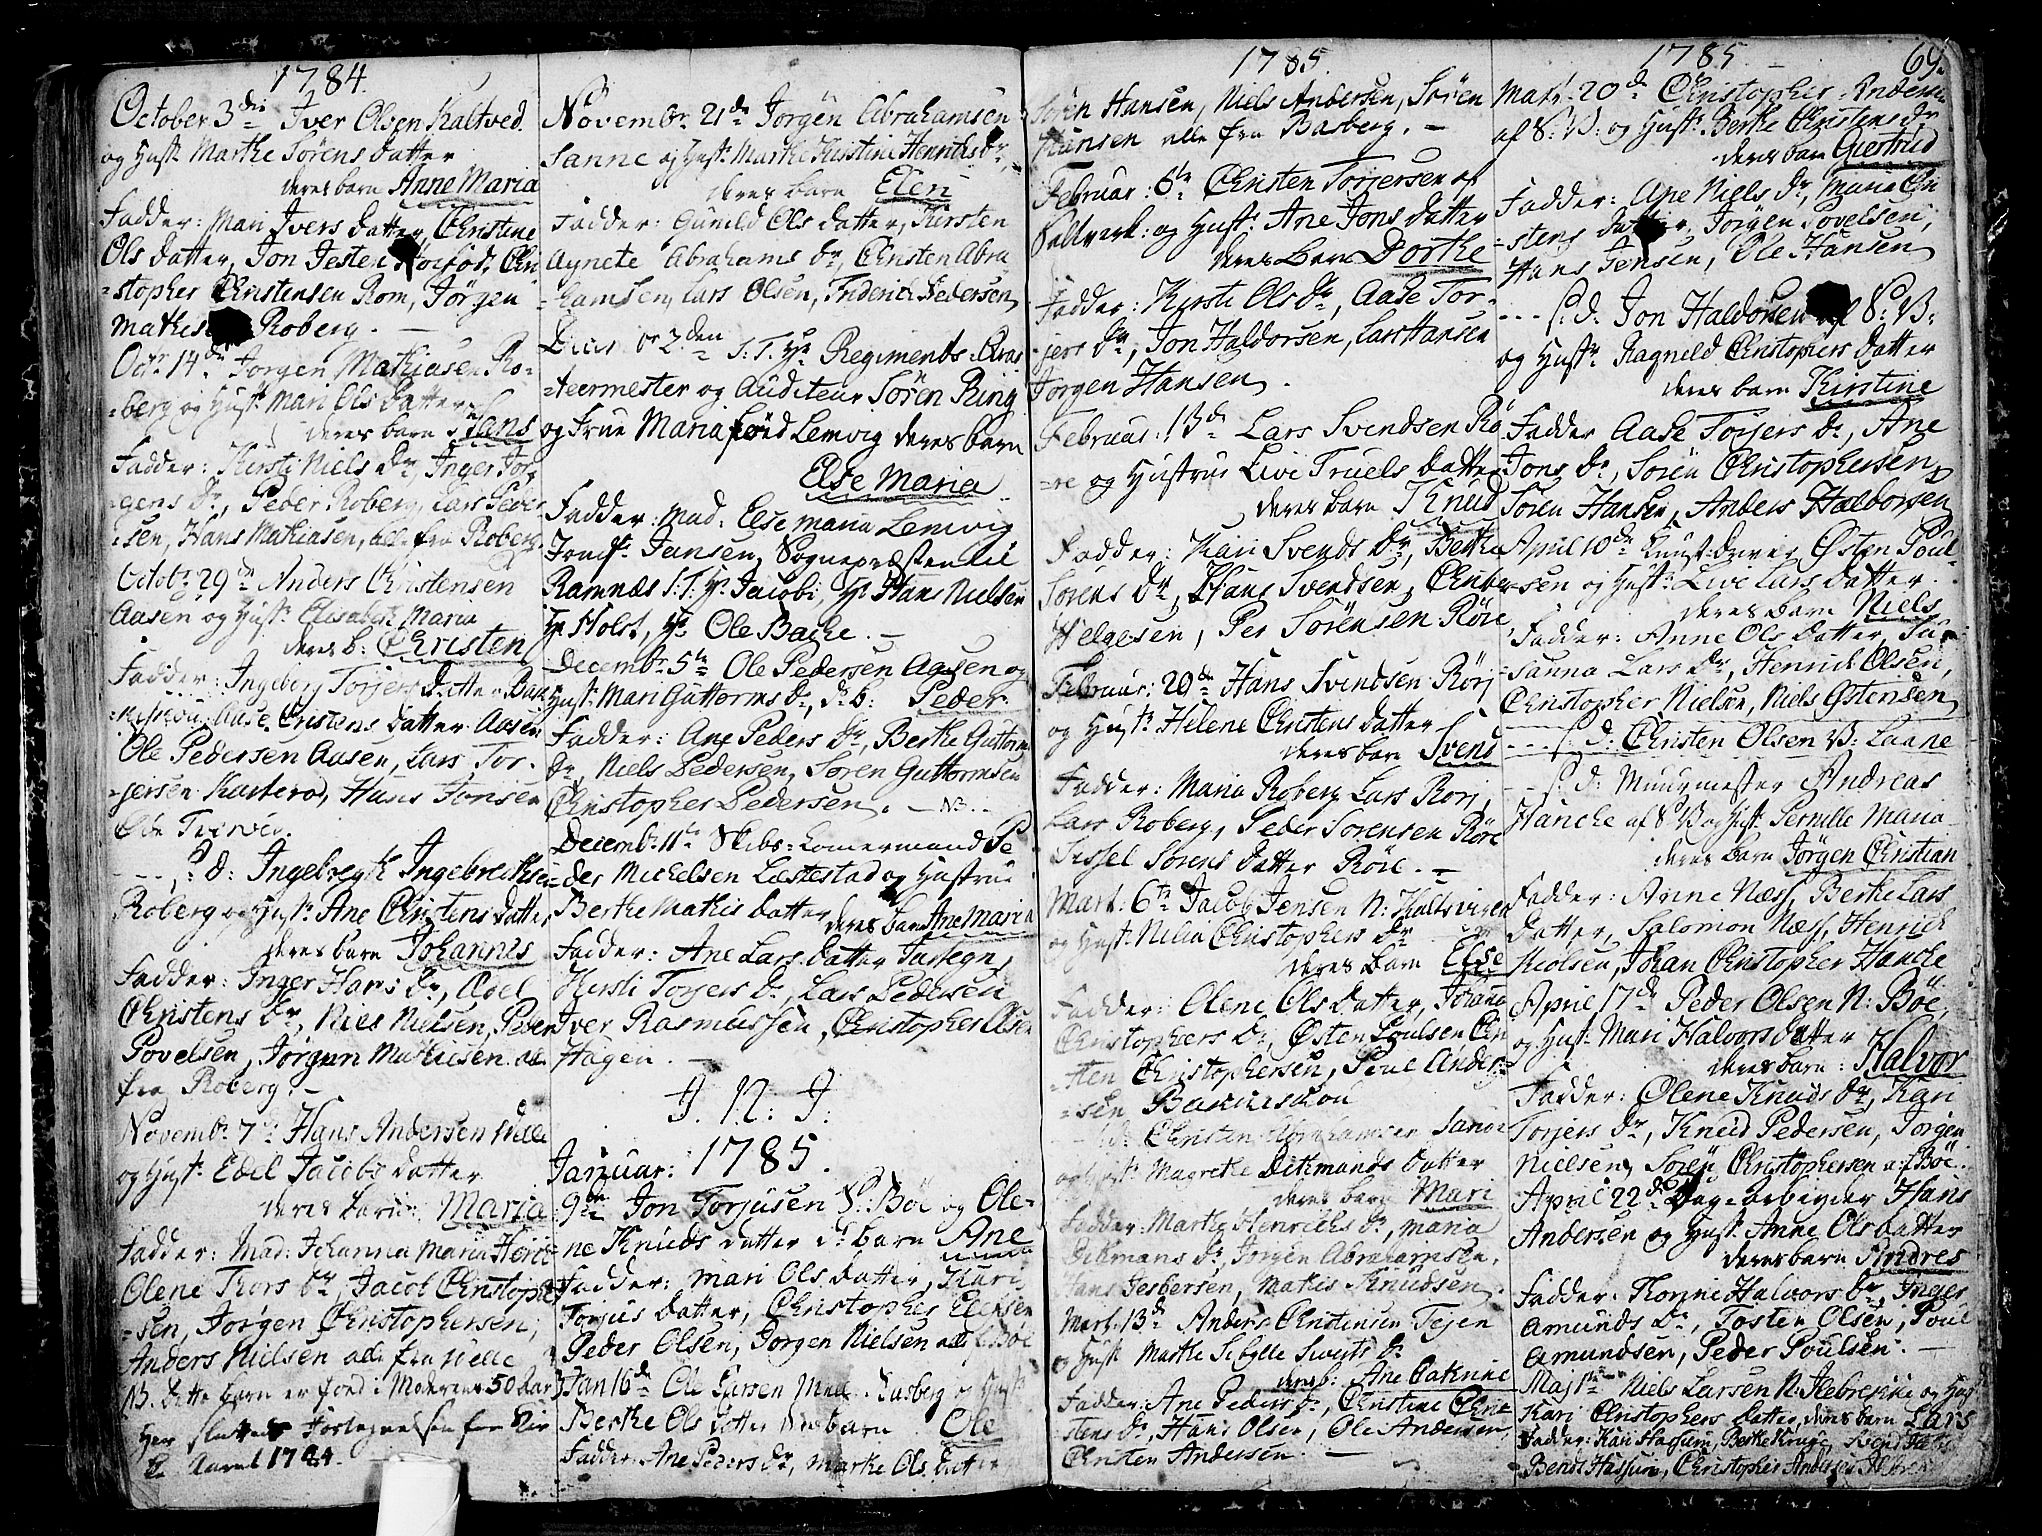 1784.
October 3die Iver Olsen Kaltved
og Hust: Marthe Sörens datter
deres barn Anne Maria
Fadder: Mari Ivers datter, Christine
Ols datter, Jon Jesten Chri
-stopher Christensen Rom, Jörgen
Mathis Roberg. —
Octr 14de Jörgen Mathjasen Ro-
-berg og Hust: Mari Ols datter
deres barn Hans
Fadder: Kirsti Niels Dr, Inger Jör-
-gens Dr, Peder Roberg, Lars Peder
-sen, Hans Mathiasen, alle fra Roberg.
Octobr 29de Anders Christensen
Aasen og Hust: Elisabeth Maria
deres b: Christen
Fadder: Ingeborg Torjers datter Bak
Aase Cristens datter Aasen
Ole Pedersen Aasen, Lars Tor-
-jersen Hans Jonsen

— S: d: Ingebregt Ingebrechtsen
Roberg og Hust: Ane Christens datter
deres barn Johannes
Fadder: Inger Hans Dr, Edel
Christens Dr, Niels Nielsen, Peder
Povelsen, Jörgen Mathiesen alle
fra Roberg. —
Novembr 7de Hans Andersen Velle
og Hust: Edel Jacobs datter
deres barn Maria
Fadder: Mad: Johanna Maria
Olene Thors Dr, Jacob Christopher
-sen, Jörgen Christophersen,
Anders Nielsen alle fra Velle
NB. Dette barn er föed i Moderens 50 Aar
Her sluttes Fortegnelsen for Kir
ke Aaret 1784.
Novembr 21de Jörgen Abrahamsen
Sanne og Hust: Marthe Kirstine Henrichs Dr
deres barn Elen
Fadder: Gunild Ols datter, Kirsten
Agnete Abrahams Dr, Christen Abra
-hamsen, Lars Olsen, Friderich Pedersen
2den S: T: Hr Regiments: Qvar
-teermester og Auditeur Sören Ring
og Frue Maria föed Lemvig deres barn
Else Maria
Fadder: Mad: Else Maria Lemvig
Jomfr: Jansen, Sognepræsten til
Ramnæs S: T: Hr Jacobi, Hr Hans Nielsen
Hr Holst, Hr Ole Bache. —
Decembr 5te Ole Pedersen Aasen og
Hust: Mari Guttorms Dr, d: b: Peder
Fadder: Ane Peders Dr, Berthe Guttorms
Dr, Niels Pedersen, Sören Guttormsen
Christopher Pedersen. — NB —
Decembr 11te Skibs-Tömermand Pe
-der Michelsen Læstestad og Hustrue
Berthe Mathis datter deres barn Ane Maria
Fadder: Ane Lars datter Jarlegn,
Kirsti Torjers Dr, Lars Pedersen
Iver Rasmussen, Christopher Olsen
Hagen. —
I. N: I:
Januar: 1785.
9de Jon Torjusen S: Böe og Ole-
ne Knuds datter d: barn Ane
Fadder: Mari Ols datter, Kari
Torjus datter, Christopher Ellefsen
Peder Olsen, Jörgen Nielsen alle f: Böe
Jan 16de Ole Larsen Basberg og Hust
Berthe Ols datter d: barn Ole
Fadder: Ane Peders Dr, Marthe Ols datter
1785.
Sören Hansen, Niels Andersen, Sören
Hansen alle fra Basberg. —
Februar: 6te Christen Torjersen af
Vallværk: og Hust: Ane Jons datter
deres barn Dorthe
Fadder: Kirsti Ols Dr, Aase Tor-
jers Dr, Jon Haldorsen, Lars Hansen
Jörgen Hansen.
Februar: 13de Lars Svendsen Rö
-re og Hustrue Live Truels datter
deres barn Knud
Fadder: Kari Svends Dr, Berthe
Sörens Dr, Hans Svendsen,
Helgesen, Per Sörensen Röre
Februar: 20de Hans Svendsen Rörj
og Hust: Helene Christens datter
deres barn Svend
Fadder: Maria Roberg Lars Rörj,
Lars Roberg, Peder Sörensen Röre
Sissel Sörens datter Röre. —
Mart: 6te Jacob Jensen N: Kaltvigen
og Hust: Nilia Christophers Dr
deres barn Else
Fadder: Olene Ols datter, Johana
Christophers Dr, Östen Poulsen Chri
-sten Christophersen, Poul Ander-
-sen
S: d: Christen Abrahamsen Sanne
og Hust: Magrethe Ditmands datter
deres barn Mari
Fadder: Marthe Henrichs Dr, Maria
Ditmans Dr, Jörgen Abrahamsen,
Hans Jesbersen, Mathis Knudsen.
Mart: 13de Anders Christensen Tejen
og Hust: Marthe Sibylle Siverts Dr
deres b: Ane Cathrine
Fadder: Ane Peders Dr, Christine Chri
stens Dr, Hans Olsen, Ole Andersen
Christen Andersen —
1785 — 69.
Mart: 20de Christopher Andersen
af S: V: og Hust: Berthe Christens Dr
deres barn Giertrud
Fadder: Ane Niels Dr, Maria Chri
-stens datter, Jörgen Povelsen,
Hans Jensen, Ole Hansen
--- S: d: Jon Haldorsen af S: V:
og Hust: Ragnild Christophers datter
deres barn Kirstine
Fadder Aase Torjers Dr, Ane
Jons Dr, Sören Christophersen,
Sören Hansen, Anders Haldorsen
April 10de Östen Poul-
-sen og Hust: Live Lars datter
deres barn Niels
Fadder: Anne Ols datter, Su-
sanna Lars Dr, Henrich Olsen,
Christopher Nielsen, Niels Östensen
--- S: d: Christen Olsen V: Lanne
--- S: d: Muurmester Andreas
Hancke af S: V: og Hust: Pernille Maria
deres barn Jörgen Christian
Fadder: Anne Næss, Berthe Lars
datter, Salomon Næss, Henrich
Nielsen, Johan Christopher Hancke
April 17de Peder Olsen N: Böe
og Hust: Mari Halvors datter
deres barn: Halvor
Fadder: Olene Knuds Dr, Kari
Torjers Dr, Knud Pedersen, Jörgen
Nielsen, Sören Christophersen af Böe.
April 22de Dag-arbejder Hans
Andersen og Hust: Anne Ols datter
deres barn Andres
Fadder: Thorine Halvors Dr, Inger
Amunds Dr, Tosten Olsen, Poul
Amundsen, Peder Poulsen. —
Maj 1te Niels Larsen N: Ilebrekke og Hust
Kari Christophers datter, deres barn Lars
Fadder: Kari Hassum, Berthe Krug,
Bendt Hassum, Christopher Andersen